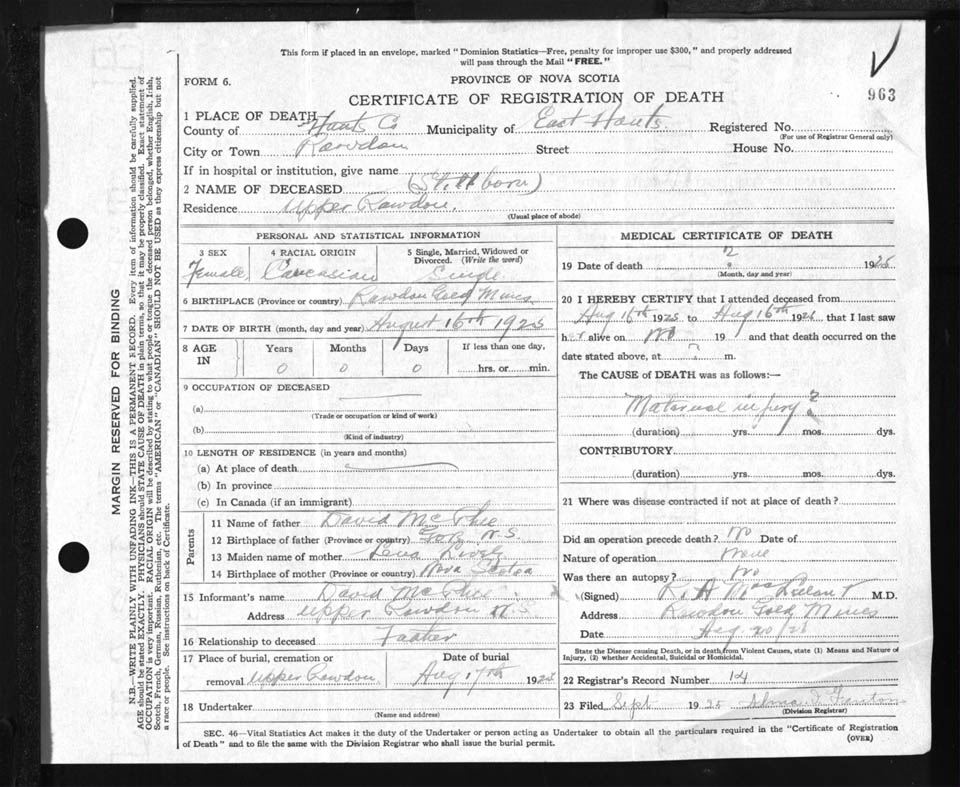 This form if placed in an envelope, marked "Dominion Statistics—Free, penalty for improper use $300," and properly addressed
will pass through the Mail "FREE."
FORM 6.
PROVINCE OF NOVA SCOTIA
963
CERTIFICATE OF REGISTRATION OF DEATH
1 PLACE OF DEATH
County of Hants Co Municipality of East Hants. Registered No.
(For use of Registrar General only)
City or Town Rawdon Street House No.
If in hospital or institution, give name
2 NAME OF DECEASED (Stillborn)
Residence Upper Rawdon.
(Usual place of abode)
PERSONAL AND STATISTICAL INFORMATION
3 SEX 4 RACIAL ORIGIN 5 Single, Married, Widowed or
Divorced. (Write the word)
Female Caucasian Single
6 BIRTHPLACE (Province or country) Rawdon Gold Mines
7 DATE OF BIRTH (month, day and year) August 16th 1925
8 AGE IN Years Months Days If less than one day,
0 0 0 hrs. or min.
9 OCCUPATION OF DECEASED
(a)
(Trade or occupation or kind of work)
(b)
(Kind of industry)
10 LENGTH OF RESIDENCE (in years and months)
(a) At place of death
(b) In province
(c) In Canada (if an immigrant)
Parents
11 Name of father David McPhee
12 Birthplace of father (Province or country) N.S.
13 Maiden name of mother Lena
14 Birthplace of mother (Province or country) Nova Scotia
15 Informant's name David McPhee
Address Upper Rawdon N.S.
16 Relationship to deceased Father
17 Place of burial, cremation or Date of burial
removal Upper Rawdon Aug 17th 1925
18 Undertaker
(Name and address)
MEDICAL CERTIFICATE OF DEATH
19 Date of death ? 1925
(Month, day and year)
20 I HEREBY CERTIFY that I attended deceased from
Aug 16th 1925 to Aug 16th 1925 that I last saw
her alive on no 19 and that death occurred on the
date stated above, at ? m.
The CAUSE of DEATH was as follows:—
Maternal injury ?
(duration) yrs. mos. dys.
CONTRIBUTORY
(duration) yrs. mos. dys.
21 Where was disease contracted if not at place of death?
Did an operation precede death? No Date of
Nature of operation None
Was there an autopsy? No
(Signed) R. A. M.D.
Address Rawdon Gold Mines
Date Aug 20/25
State the Disease causing Death, or in death from Violent Causes, state (1) Means and Nature of
Injury, (2) whether Accidental, Suicidal or Homicidal.
22 Registrar's Record Number 14
23 Filed Sept 1925
(Division Registrar)
SEC. 46—Vital Statistics Act makes it the duty of the Undertaker or person acting as Undertaker to obtain all the particulars required in the "Certificate of Registration
of Death" and to file the same with the Division Registrar who shall issue the burial permit.
(OVER)
MARGIN RESERVED FOR BINDING
N.B.—WRITE PLAINLY WITH UNFADING INK—THIS IS A PERMANENT RECORD. Every item of information should be carefully supplied.
AGE should be stated EXACTLY. PHYSICIANS should STATE CAUSE OF DEATH in plain terms, so that it may be properly classified. Exact statement of
OCCUPATION is very important. RACIAL ORIGIN will be described by stating to what people or tongue the deceased person belonged, whether English, Irish,
Scotch, French, German, Russian, Ruthenian, etc. The terms "AMERICAN" or "CANADIAN" SHOULD NOT BE USED as they express citizenship but not
a race or people. See instructions on back of Certificate.